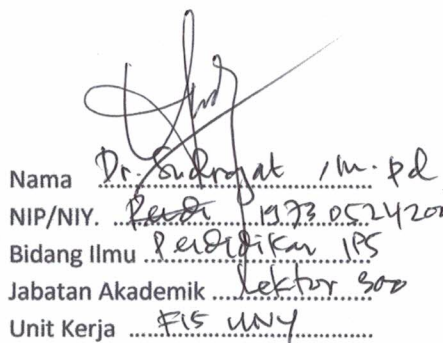 Nama Dr. Sudrajat, M.Pd
NIP/NIY. 1973 0524200
Bidang Ilmu Pendidikan IPS
Jabatan Akademik Lektor 300
Unit Kerja FIS UNY